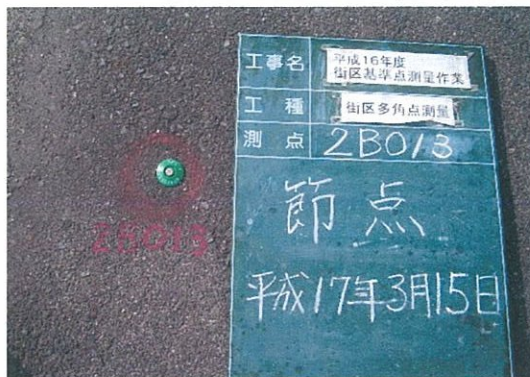 工事名 平成16年度
街区基準点測量作業
工種 街区多角点測量
測点 2B013
節点
平成17年3月15日
2B013